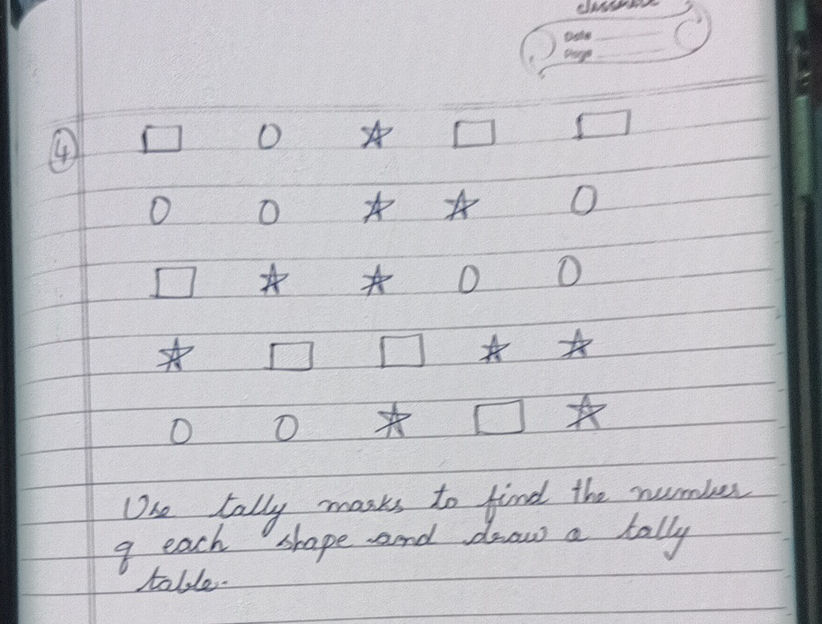 Classmate
Date
Page
4
Use tally marks to find the number
of each shape and draw a tally
table.